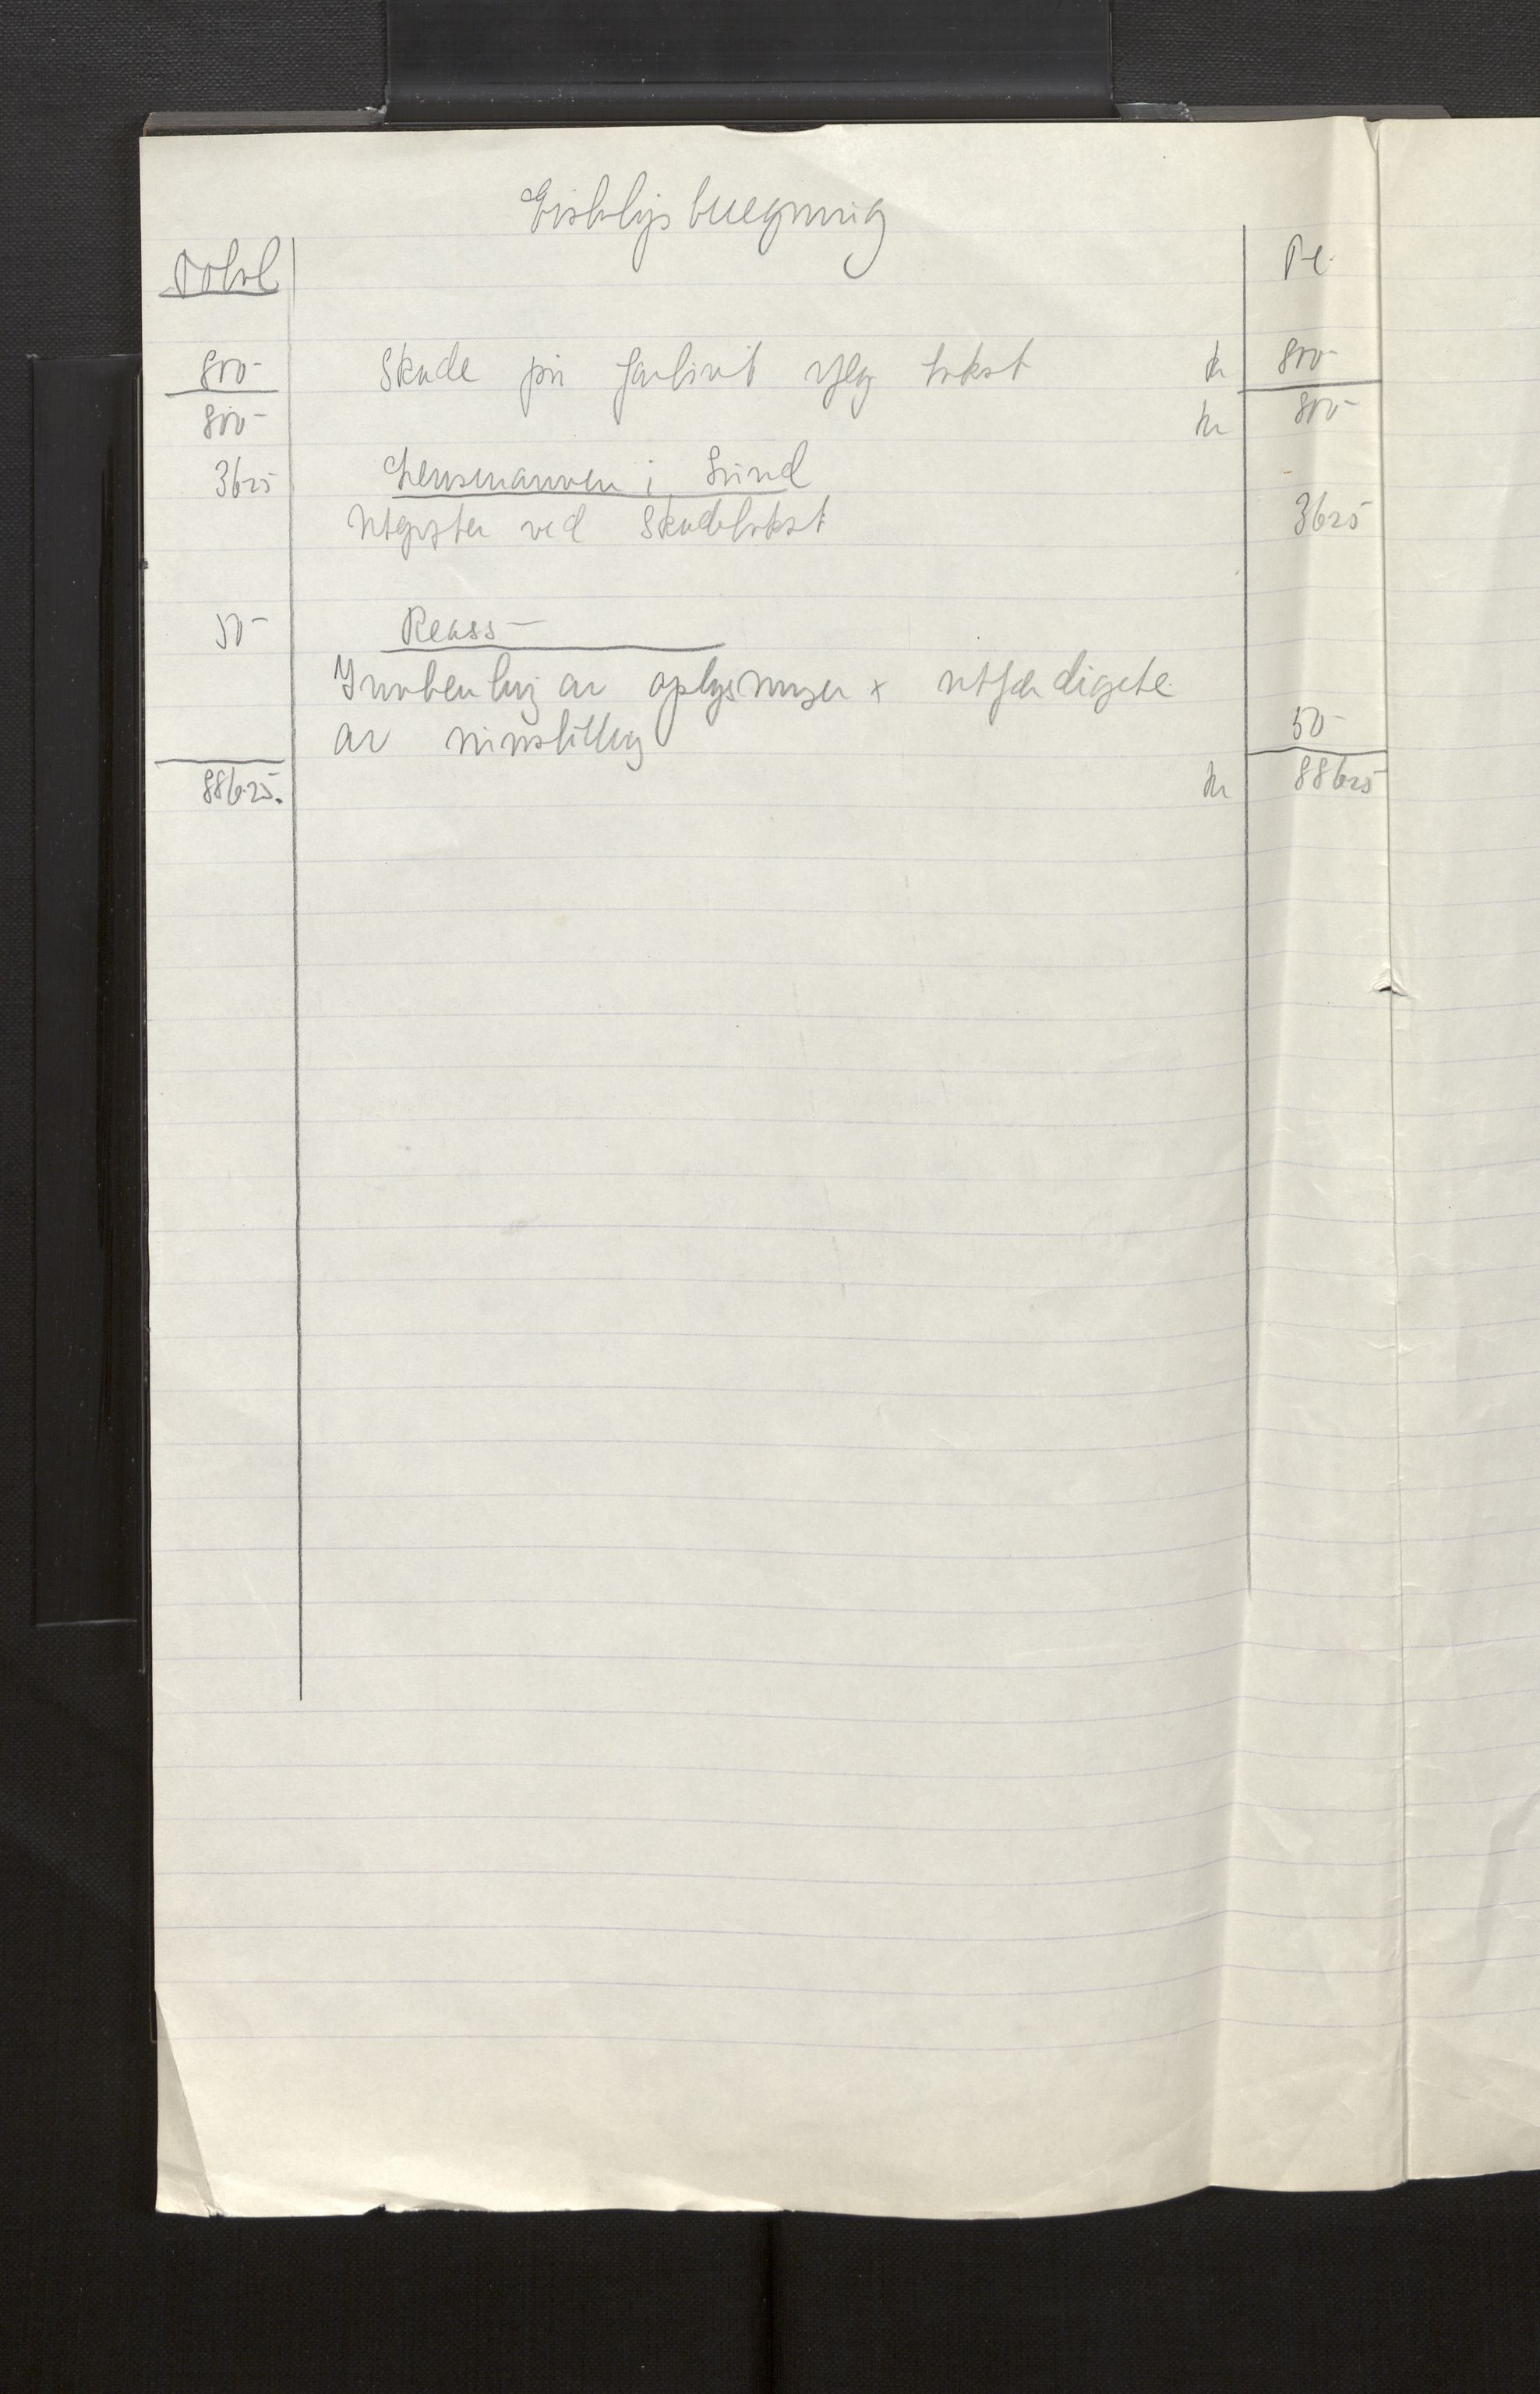 Erstatnings beregning
Total
P.A.
800- Skade på fartøiet iflg takst kr 800-
800- kr 800-
3625 Lensmannen i Sund
Utgifter ved Skadetakst 3625
50- Reass
Innhenting av oplysninger + utferdigete
av innstilling 50-
886.25. kr 88625